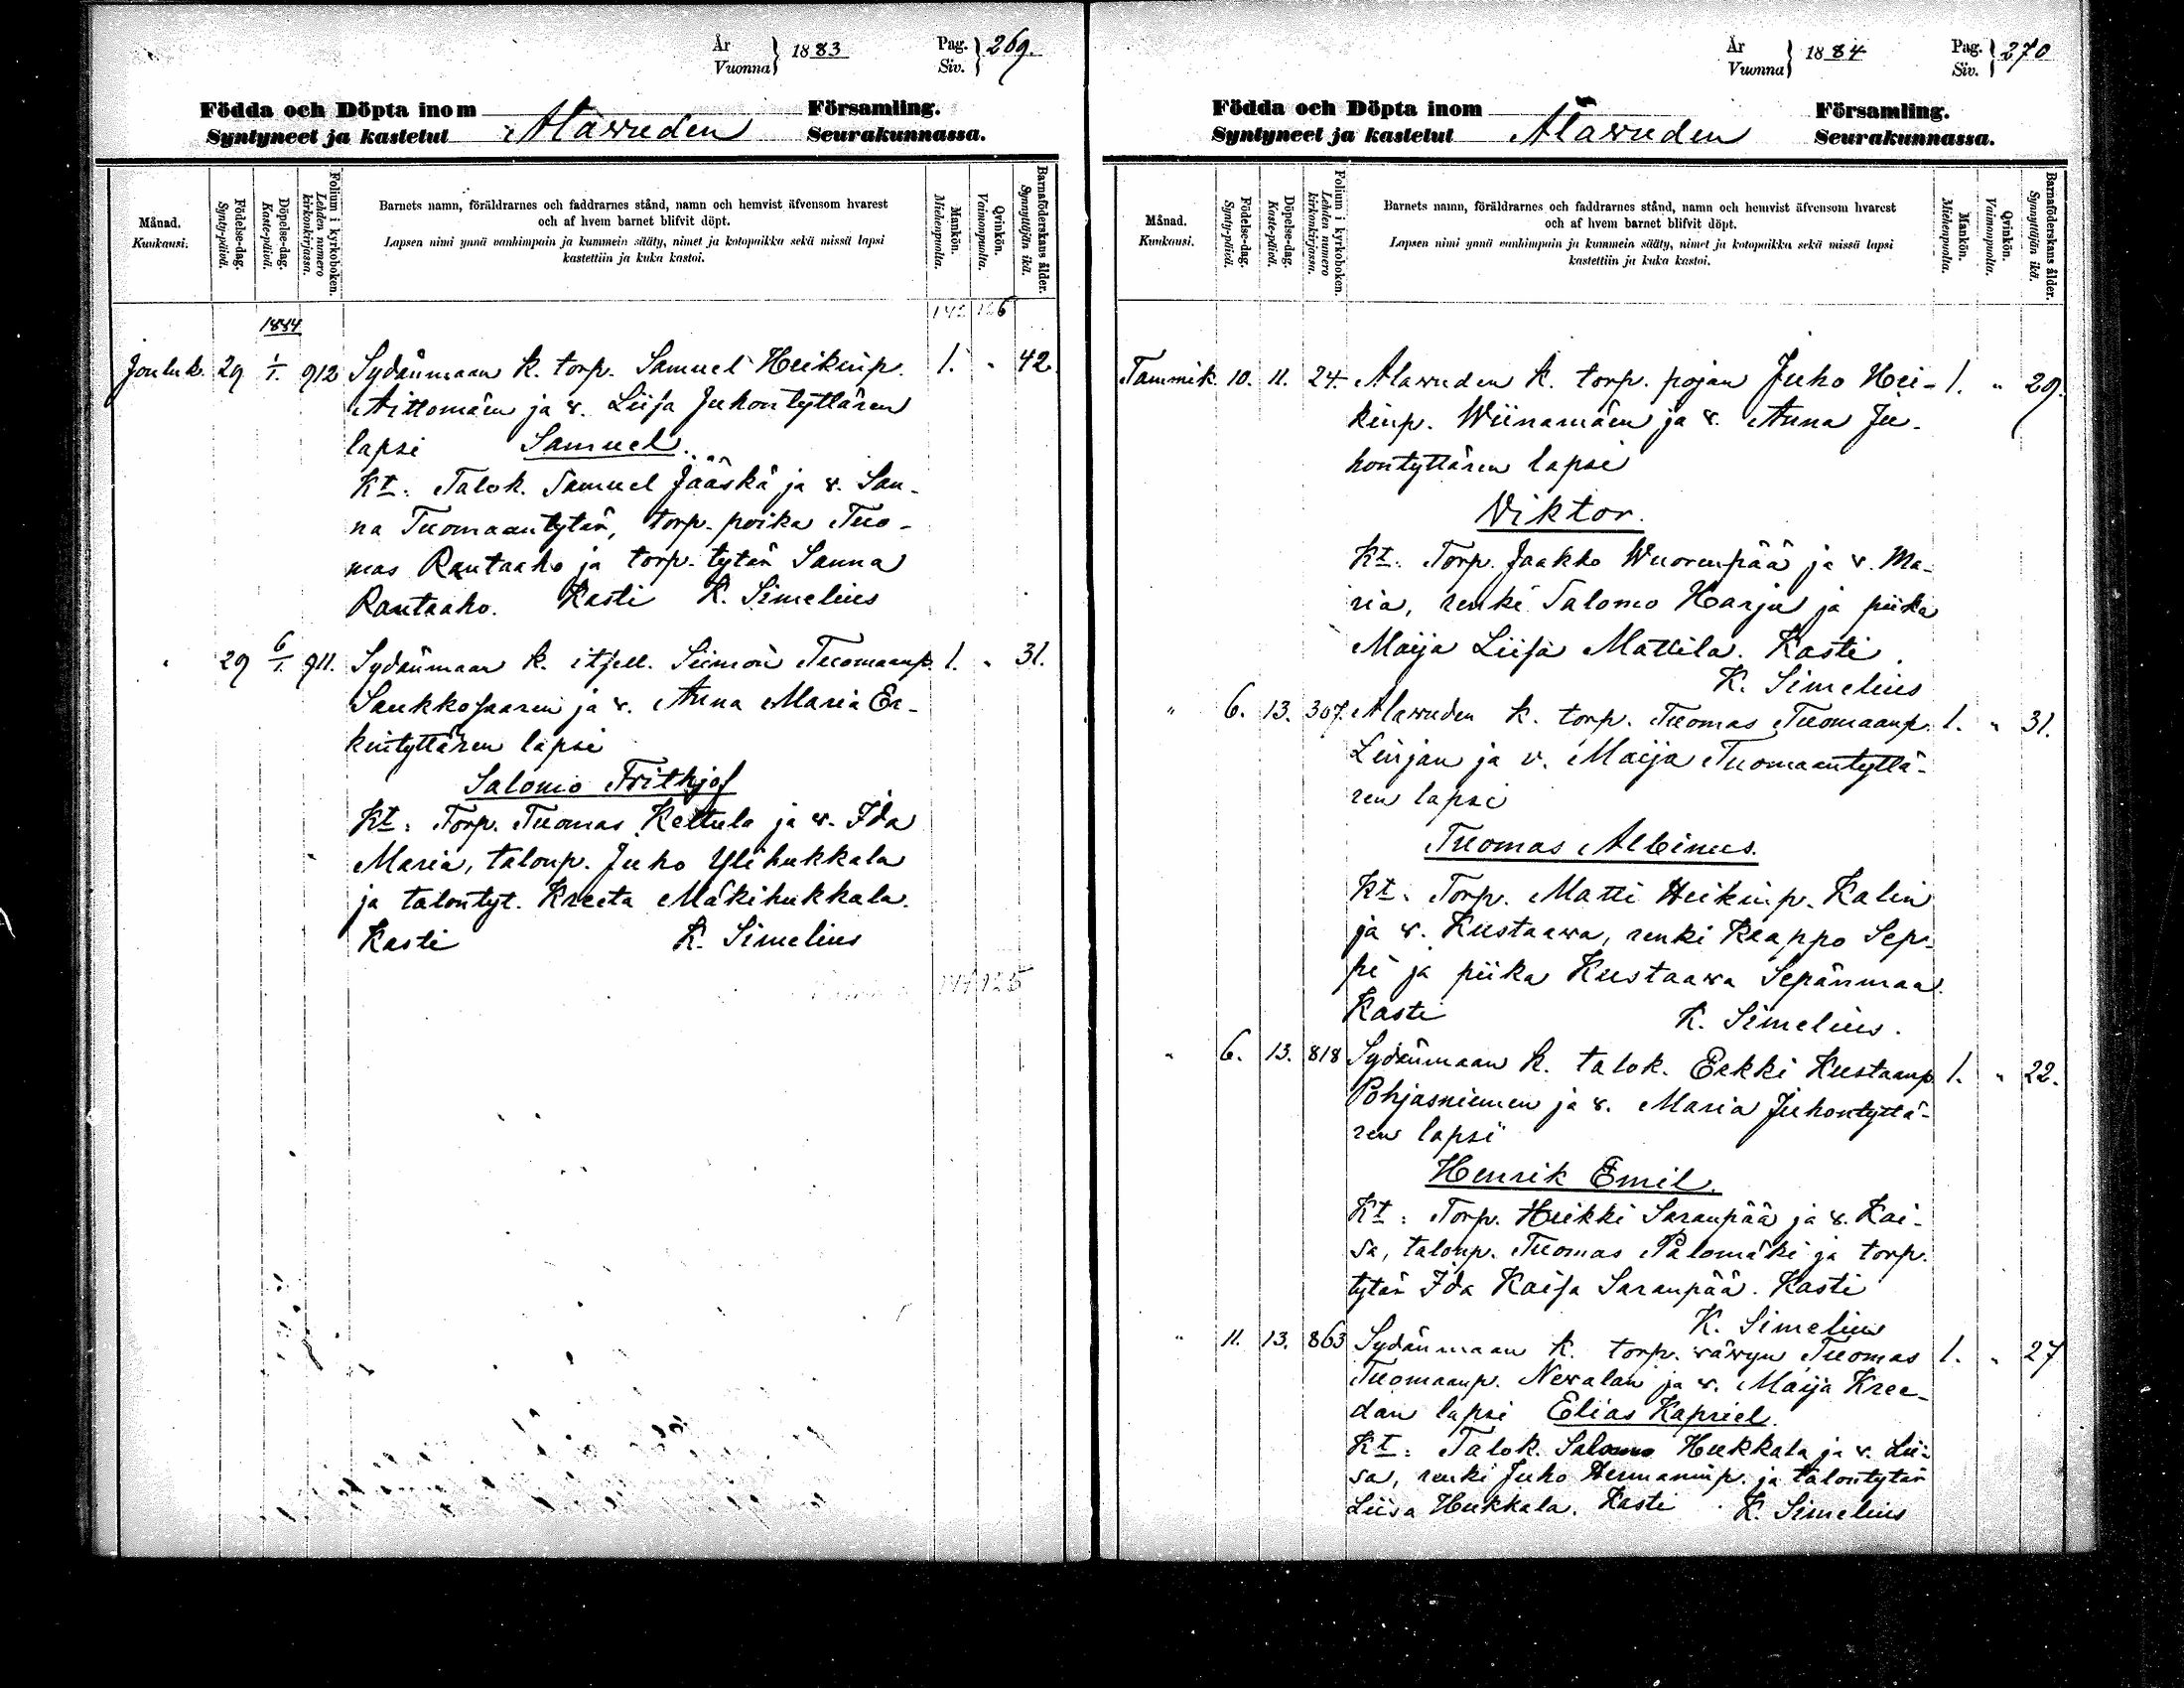 År
Vuonna } 1883
Pag.
Siv. } 269.
Födda och Döpta inom Församling.
Syntyneet ja kastetut Alavuden Seurakunnassa.
Månad.
Kuukausi.
Födelse-dag.
Synty-päivä.
Döpelse-dag.
Kaste-päivä.
Folium i kyrkoboken.
Lehden numero
kirkonkirjassa.
Barnets namn, föräldrarnes och faddrarnes stånd, namn och hemvist äfvensom hvarest
och af hvem barnet blifvit döpt.
Lapsen nimi ynnä vanhimpain ja kummein sääty, nimet ja kotopaikka sekä missä lapsi
kastettiin ja kuka kastoi.
Mankön.
Miehenpuolta.
Qvinkön.
Vaimonpuolta.
Barnaföderskans ålder.
Synnyttäjän ikä.
1884
Jouluk. 29 1/1. 912 Sydänmaan k. torp. Samuel Heikinp. 1. " 42.
Aittomäen ja v. Liisa Juhontyttären
lapsi Samuel.
Kt: Talok. Samuel Jääskä ja v. San-
na Tuomaantytär, torp. poika Tuo-
mas Rautaaho ja torp. tytär Sanna
Rautaaho. Kasti K. Simelius
" 29 6/1. 911. Sydänmaan k. itsell. Siimon Tuomaanp. 1. " 31.
Saukkosaaren ja v. Anna Maria Er-
kintyttären lapsi
Salomo Frithjof
Kt: Torp. Tuomas Kettula ja v. Ida
Maria, talonp. Juho Ylihukkala
ja talontyt. Kreeta Mäkihukkala.
Kasti K. Simelius
År
Vuonna } 1884
Pag.
Siv. } 270
Födda och Döpta inom Församling.
Syntyneet ja kastetut Alavuden Seurakunnassa.
Månad.
Kuukausi.
Födelse-dag.
Synty-päivä.
Döpelse-dag.
Kaste-päivä.
Folium i kyrkoboken.
Lehden numero
kirkonkirjassa.
Barnets namn, föräldrarnes och faddrarnes stånd, namn och hemvist äfvensom hvarest
och af hvem barnet blifvit döpt.
Lapsen nimi ynnä vanhimpain ja kummein sääty, nimet ja kotopaikka sekä missä lapsi
kastettiin ja kuka kastoi.
Mankön.
Miehenpuolta.
Qvinkön.
Vaimonpuolta.
Barnaföderskans ålder.
Synnyttäjän ikä.
Tammik. 10. 11. 24. Alavuden k. torp. pojan Juho Hei- 1. " 29.
kinp. Wiinamäen ja v. Anna Ju-
hontyttären lapsi
Viktor.
Kt: Torp. Jaakko Wuorenpää ja v. Ma-
ria, renki Salomo Harju ja piika
Maija Liisa Mattila. Kasti
K. Simelius
" 6. 13. 307. Alavuden k. torp. Tuomas Tuomaanp. 1. " 31.
Linjan ja v. Maija Tuomaantyttä-
ren lapsi
Tuomas Albinus.
Kt: Torp. Matti Heikinp. Kalin
ja v. Kustaava, renki Kaappo Sep-
pi ja piika Kustaava Sepänmaa.
Kasti K. Simelius.
" 6. 13. 818 Sydänmaan k. talok. Erkki Kustaanp. 1. " 22.
Pohjasniemen ja v. Maria Juhontyttä-
ren lapsi
Henrik Emil.
Kt: Torp. Heikki Saranpää ja v. Kai-
sa, talonp. Tuomas Palomäki ja torp.
tytär Ida Kaisa Saranpää. Kasti
K. Simelius
" 11. 13. 863 Sydänmaan k. torp. vävyn Tuomas 1. " 27
Tuomaanp. Nevalan ja v. Maija Kree-
dan lapsi Elias Kapriel.
Kt: Talok. Salomo Hukkala ja v. Lii-
sa, renki Juho Hermaninp. ja talontytär
Liisa Hukkala. Kasti K. Simelius